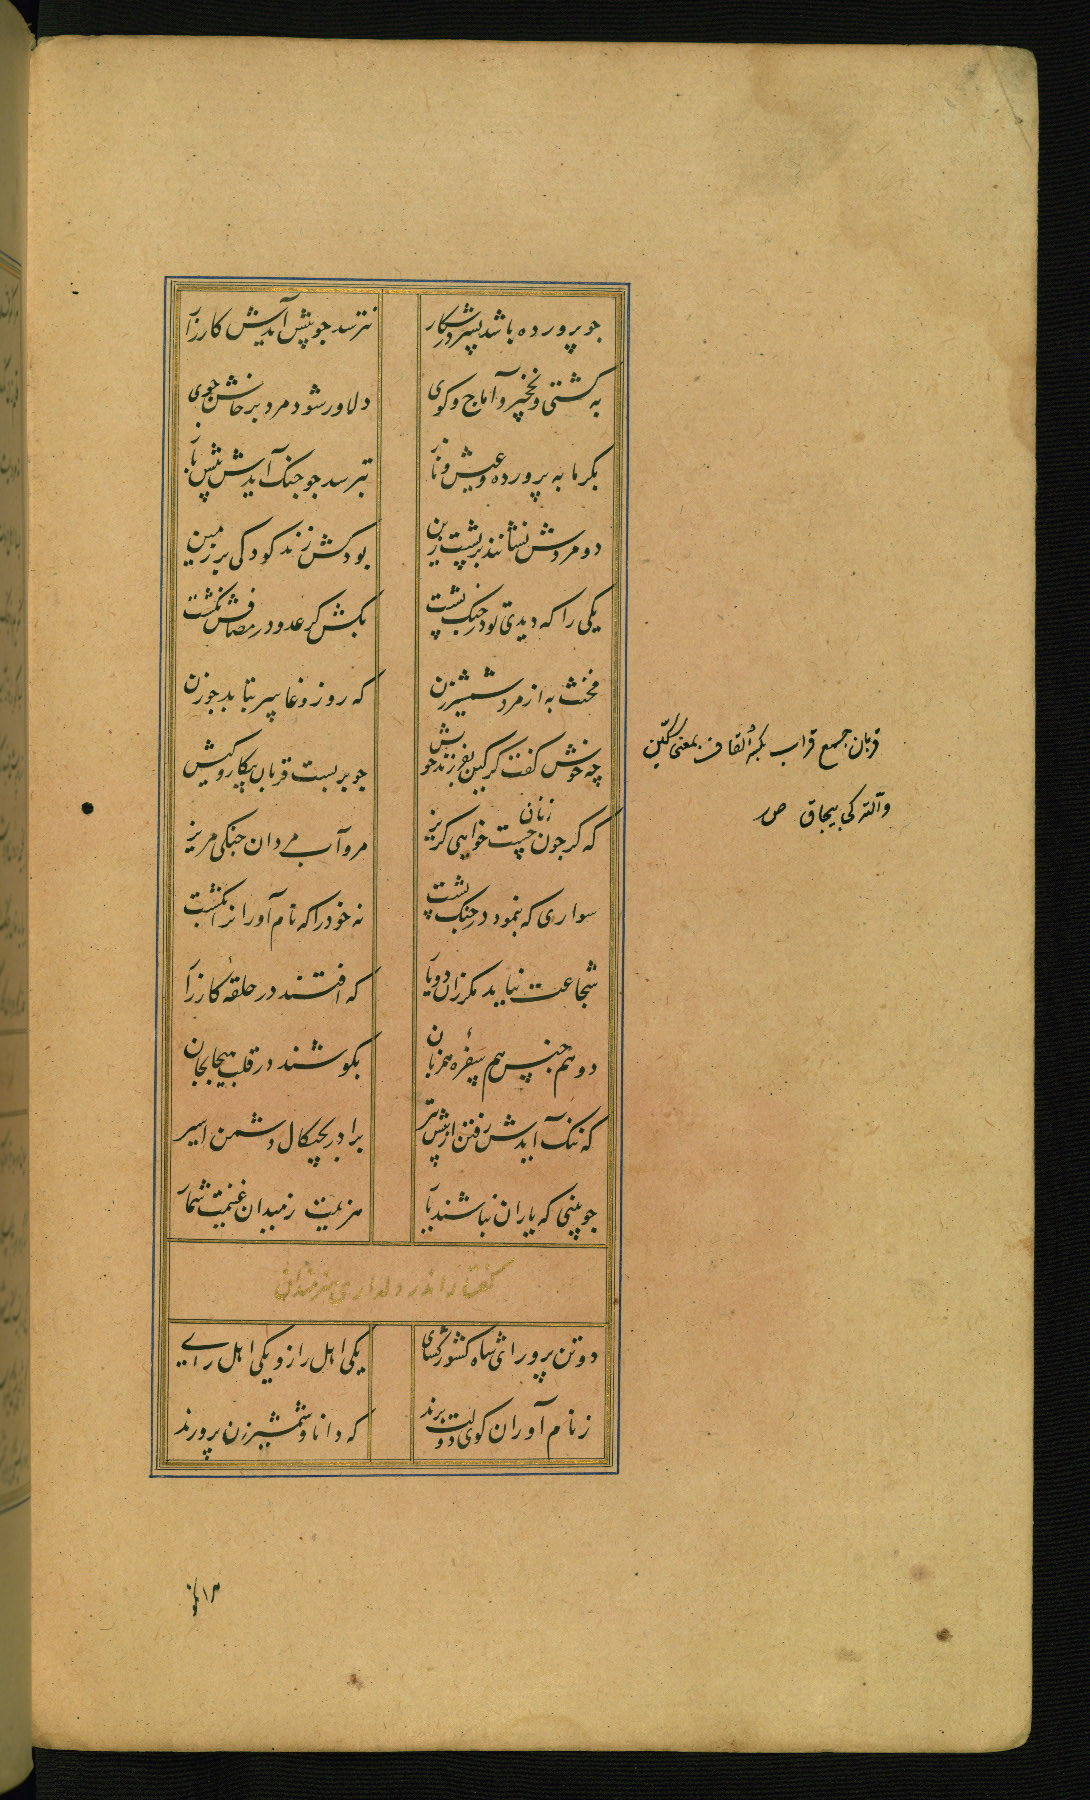 جو پرورده باشد پسر در شکار نترسد جو پیش آیدش کارزار
به کشتی و نخچیر و آماج و کوی دلاور شود مرد پرخاش جوی
بکرمابه پرورده و عیش و ناز بترسد جو جنک آیدش پیش باز
دو مردش نشانند بر پشت زین بود کش زند کودکی بر زمین
یکی را که دیدی تو در جنک پشت بکش کر عدو در مصافش نکشت
مخنث به از مرد شمشیرزن که روز وغا سر بتابد جو زن
چه خوش کفت کرکین بفرزند خویش جو بر بست قربان پیکار و کیش
که کر جون زنان جست خواهی کریز مرو آب مردان جنکی مریز
سواری که بنمود در جنک پشت نه خود را که نام آوران را بکشت
شجاعت نیاید مکر زان دو یار که افتند در حلقهٔ کارزار
دو هم جنس هم سفرهٔ هم زبان بکوشند در قلب هیجا بجان
که ننک آیدش رفتن از پیش تیر برادر بچنکال دشمن اسیر
جو بینی که یاران نباشند یار هزیمت ز میدان غنیمت شمار
کفتار اندر دلداری هنرمندان
دو تن پرور ای شاه کشور کشای یکی اهل راز و یکی اهل رای
ز نام آوران کوی دولت برند که دانا و شمشیرزن پرورند
قربان جمع قراب بکسر القاف بمعنی سکین